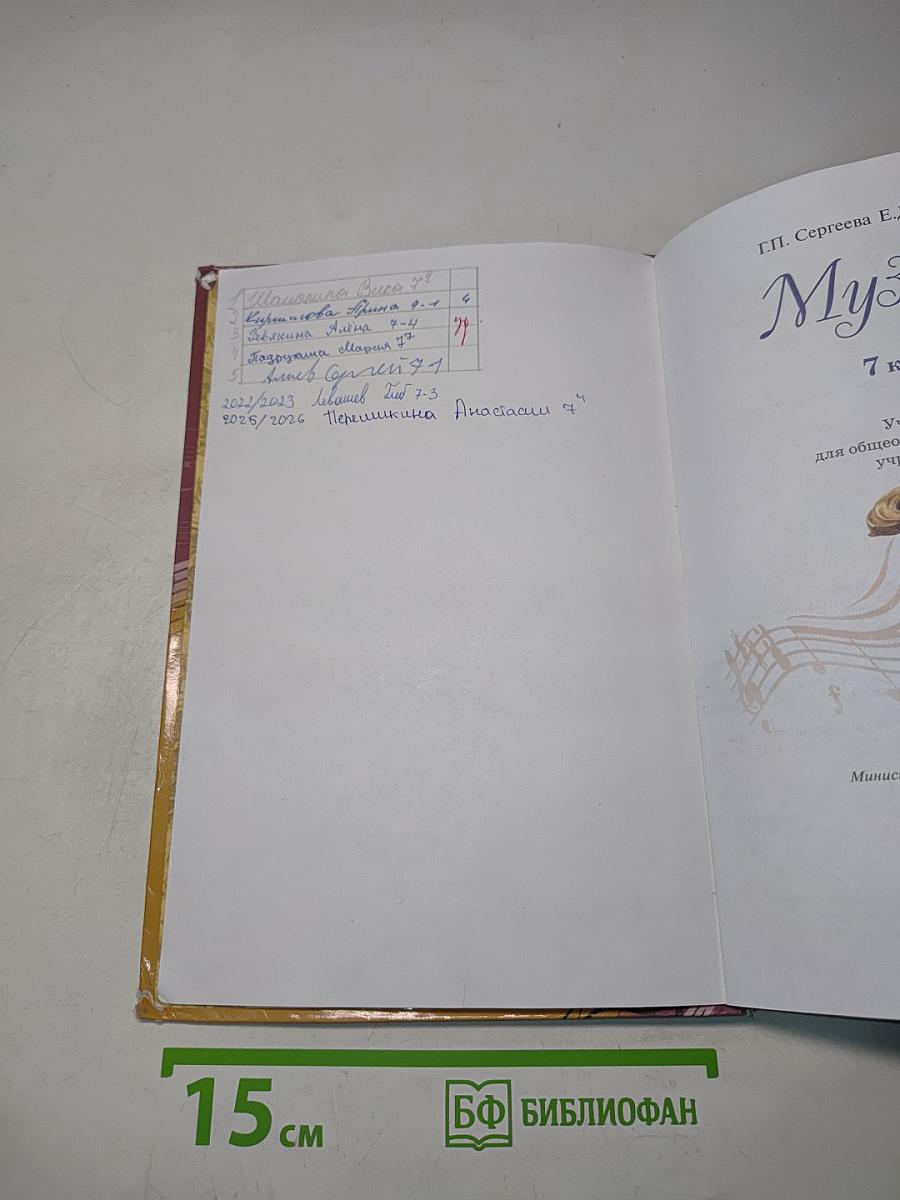 1 Шамонина Вика 7
2 Кириллова Ирина 7-1 4
3 Ревякина Алёна 7-4
4 Подружина Мария 7⁷
5 Алиев Сергей 7-1
2022/2023 Левашев Глеб 7-3
2025/2026 Перемикина Анастасии 7⁴
Г.П. Сергеева Е.Д
Муз
7 к
Уч
для общео
учр
Минис
15 см
БФ БИБЛИОФАН